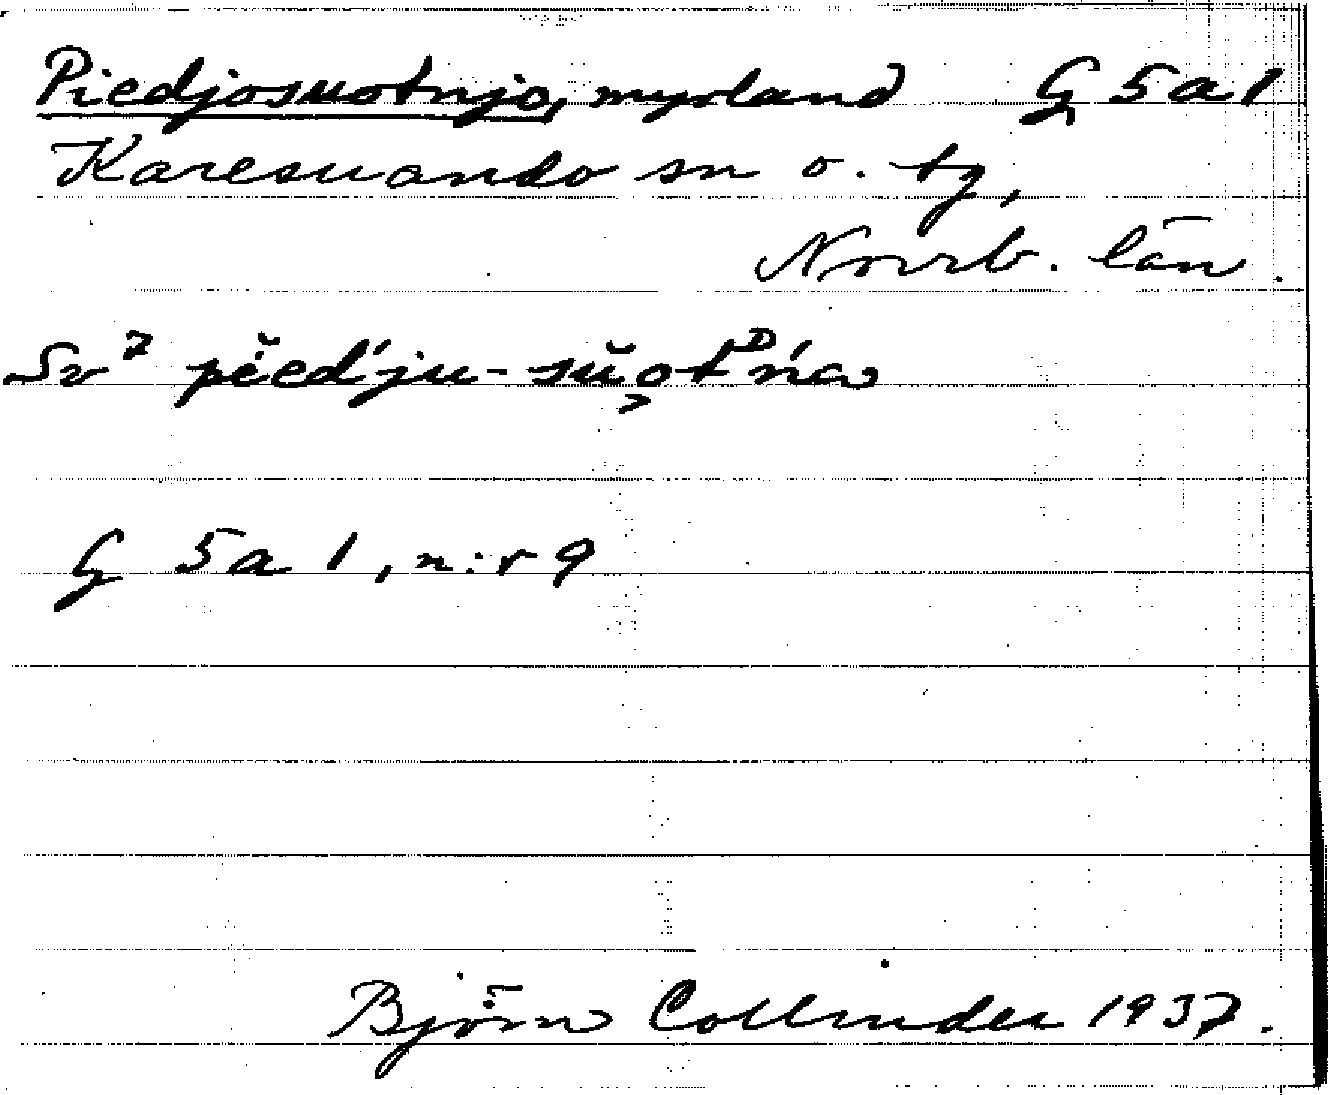 Piedjosuotnjo, myrland G 5 a 1
Karesuando sn o. tg,
Norrb. län.
Sv² pĕed́ju-sŭo̭tᴰńa
G 5 a 1, n:r 9
Björn Collinder 1937.